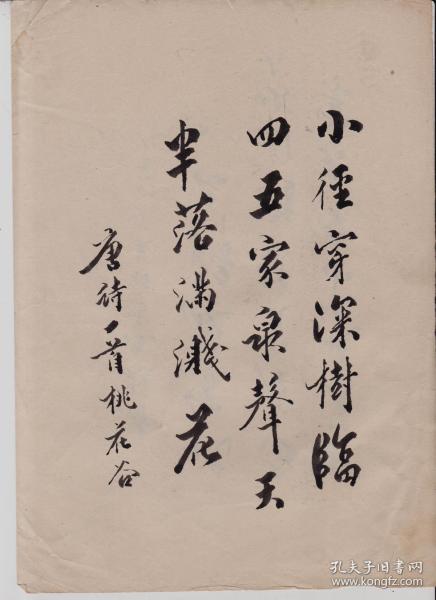 小徑穿深樹臨
四五家泉聲天
半落滿澗花
唐詩一首桃花谷
孔夫子旧书网
www.kongfz.com